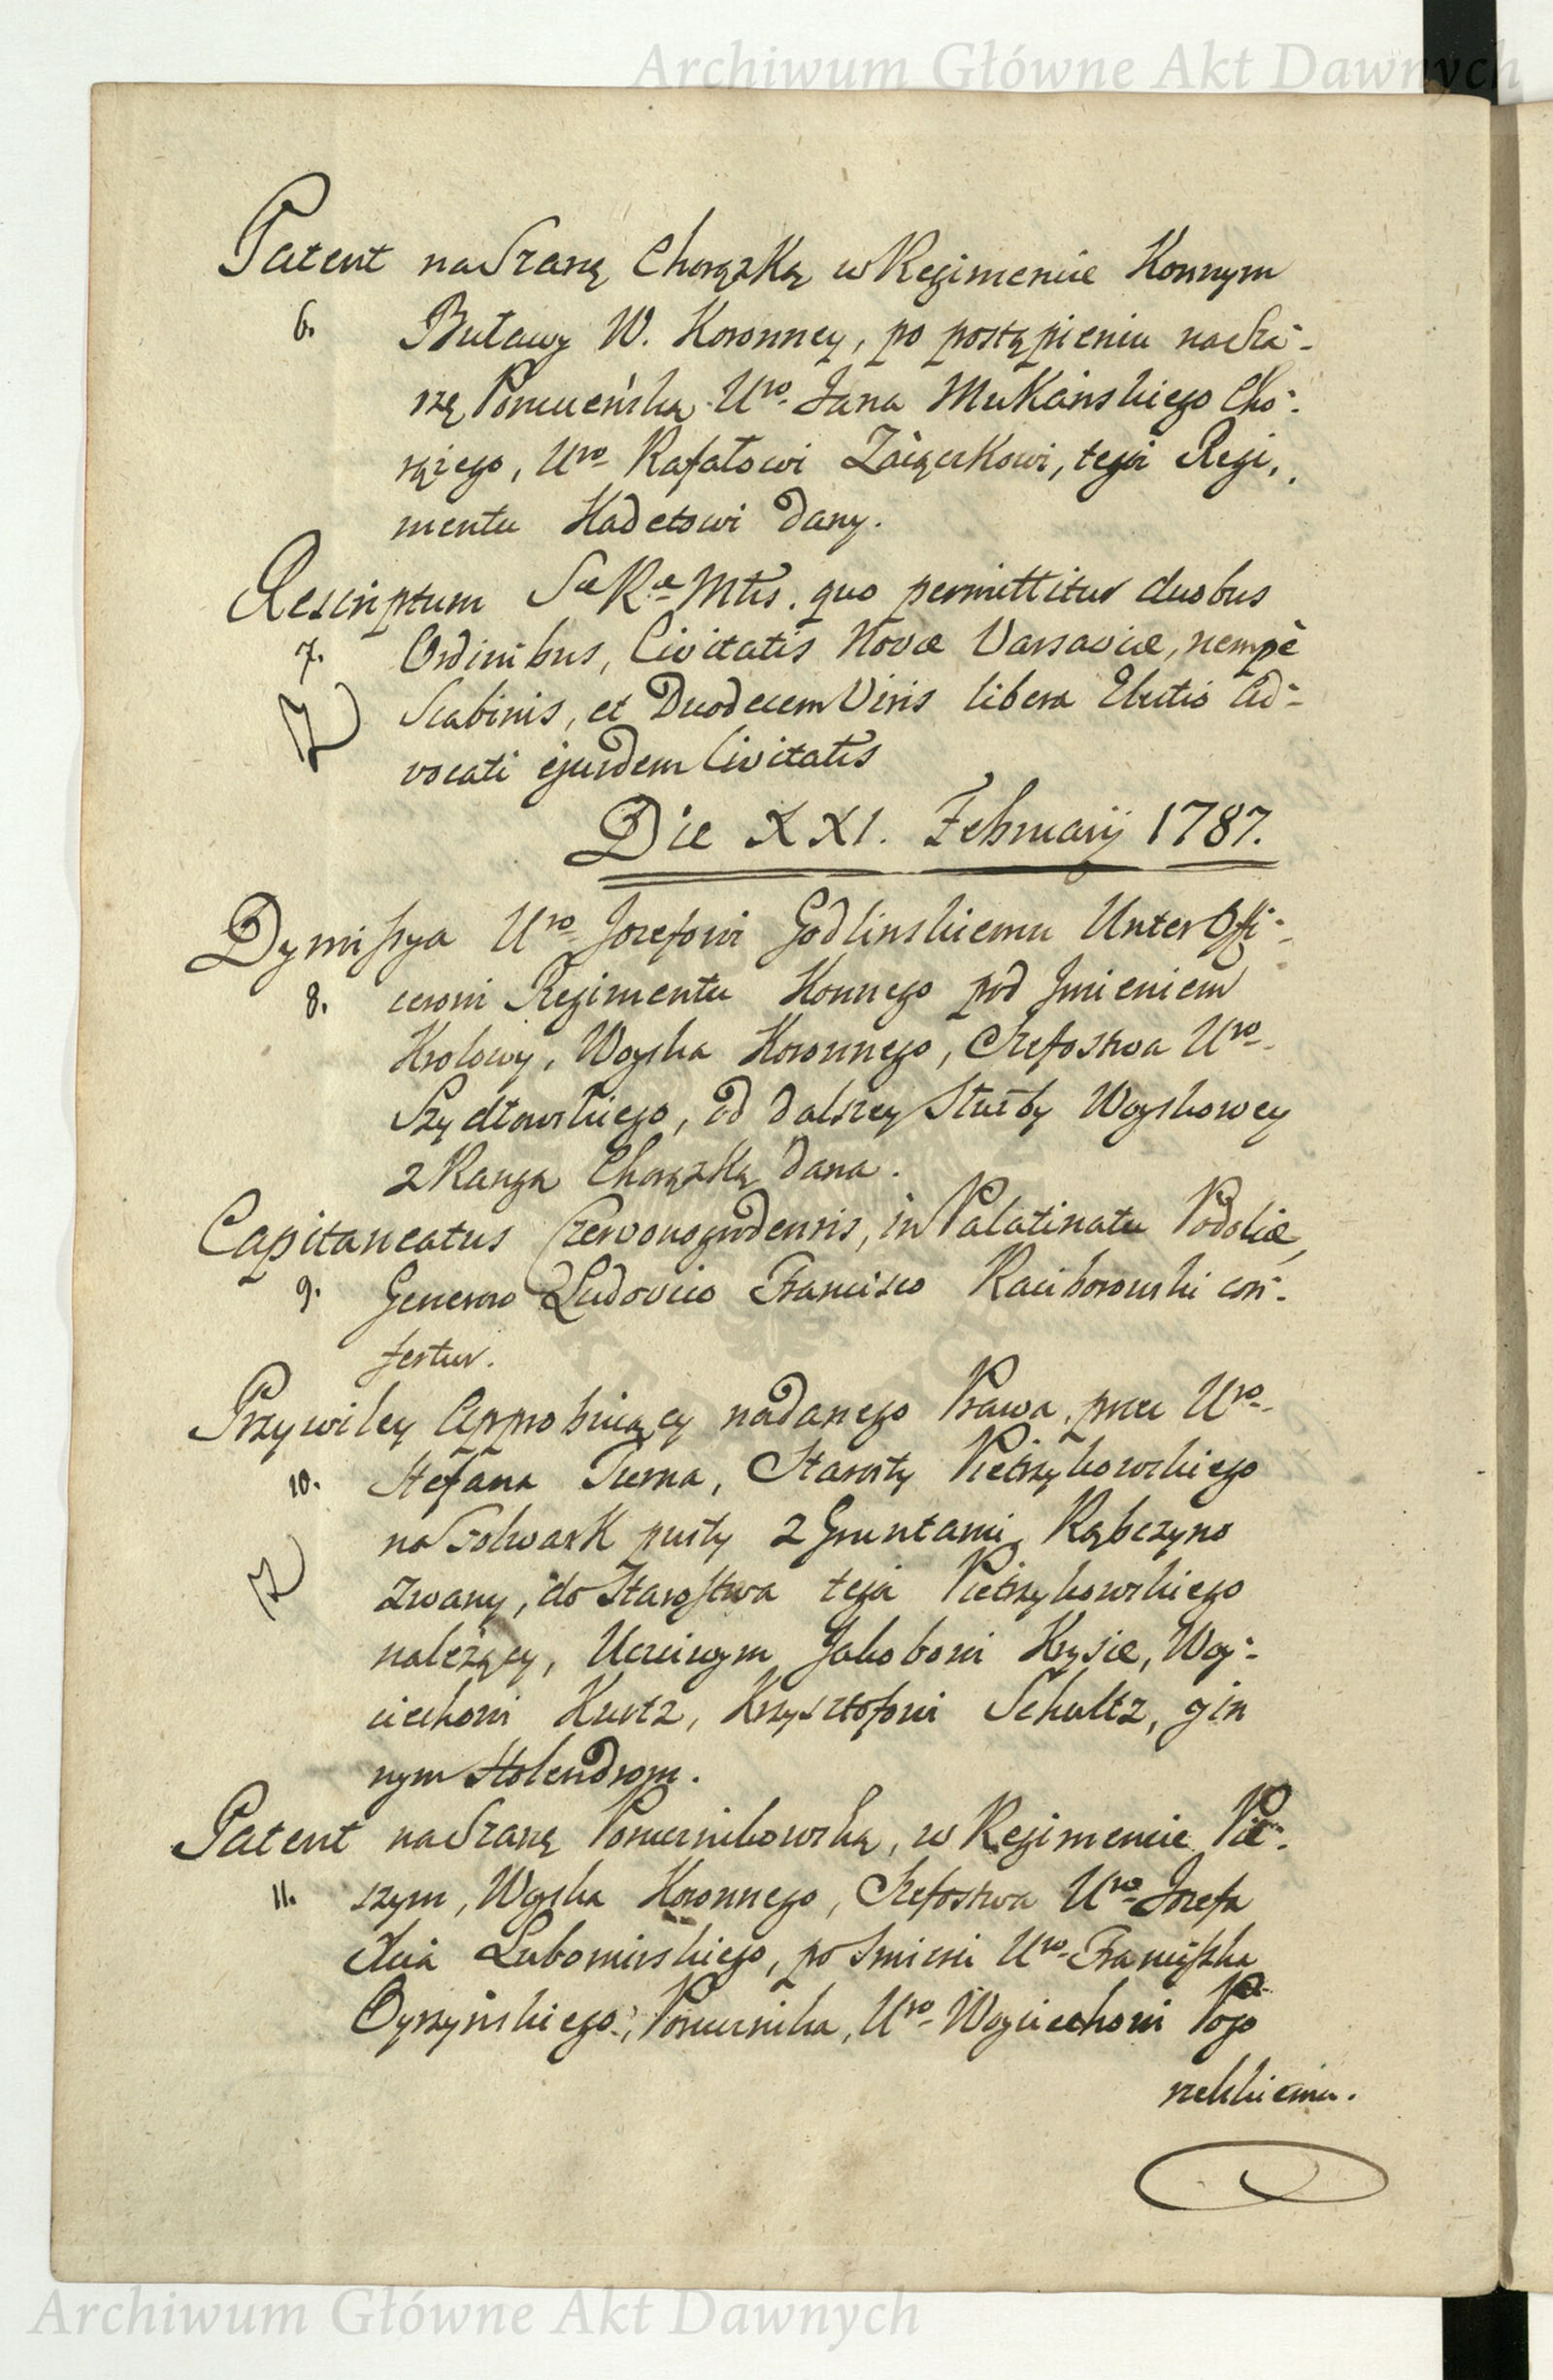 Archiwum Główne Akt Dawnych
Patent na Szarżę Chorążską w Regimencie Konnym
6. Buławy W. Koronney, po postąpieniu na Szar-
żę Porucznską Uro Jana Chorą-
żego, Uro Rafałowi Zaiączkowi, tegoż Regi,
mentu Kadetowi dany.
Rescriptum Sæ Ræ Mttis. quo permittitur duobus
7. Ordinibus, Civitatis Novæ Varsaviæ, nempè
Scabinis, et Duodecem Viris libera Electio Ad-
vocati ejusdem Civitatis
Die XXI. Februarij 1787.
Dymissya Uro Jozefowi Godlinskiemu Unteroffi-
8. cerowi Regimentu Konnego pod Jmieniem
Krolowy, Woyska Koronnego, Szefostwa Uro
Szydłowskiego, od dalszey Służby Woyskowey
z Rangą Chorążską dana.
Capitaneatus Czervonogrodensis, in Palatinatu Podoliæ,
9. Generoso Ludovico Francisco Raciborowski con-
fertur.
Przywiley Approbuiący nadanego Prawa, przez Uro
10. Stefana Turna, Starosty Pietrzykowskiego
na Folwark pusty z Gruntami Rąbczyno
zwany, do Starostwa tegoż Pietrzykowskiego
należący, Uczciwym Jakobowi Krysie, Woy-
ciechowi Kurtz, Krzysztofowi Schultz, y in
nym Holendrom.
Patent na Szarżę Porucznikowską, w Regimencie Pie-
11. szym, Woyska Koronnego, Szefostwa Uro Jozefa
Xcia Lubomirskiego, po Smierci Uro Franciszka
Oyrzyńskiego, Porucznika, Uro Woyciechowi Pogo
rzelskiemu.
Archiwum Główne Akt Dawnych